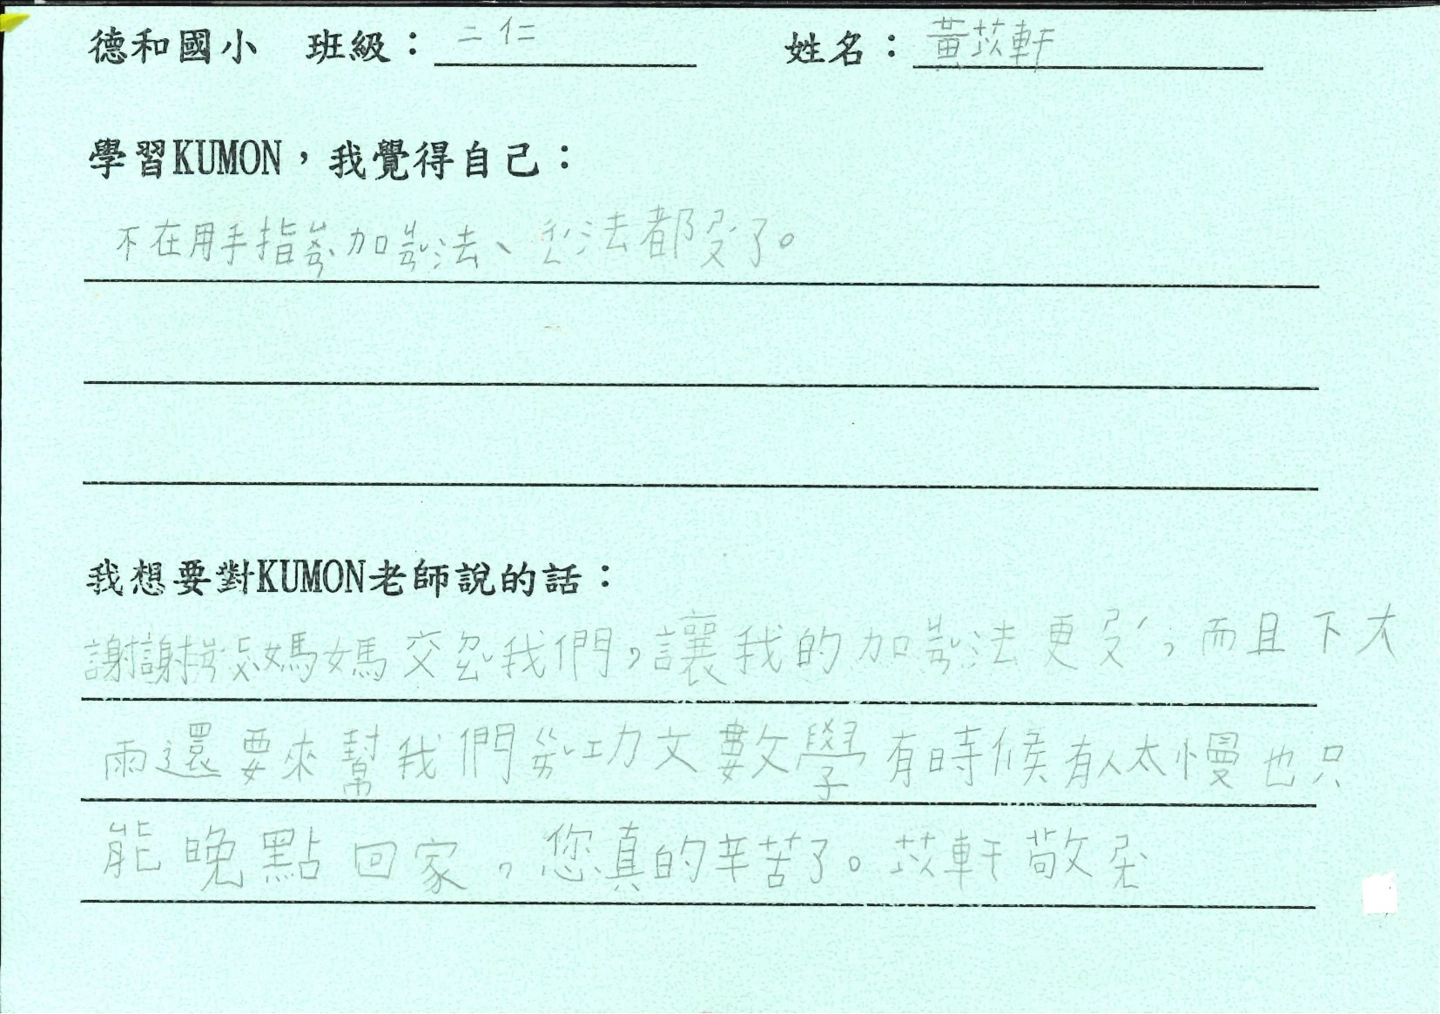 德和國小　班級：二仁　姓名：黃苡軒
學習KUMON，我覺得自己：
不在用手指 加 法、 法都 了。
我想要對KUMON老師說的話：
謝謝 媽媽交 我們，讓我的加 法更 ，而且下大
雨還要來幫我們 功文數學有時候有人太慢也只
能晚點回家，您真的辛苦了。苡軒敬